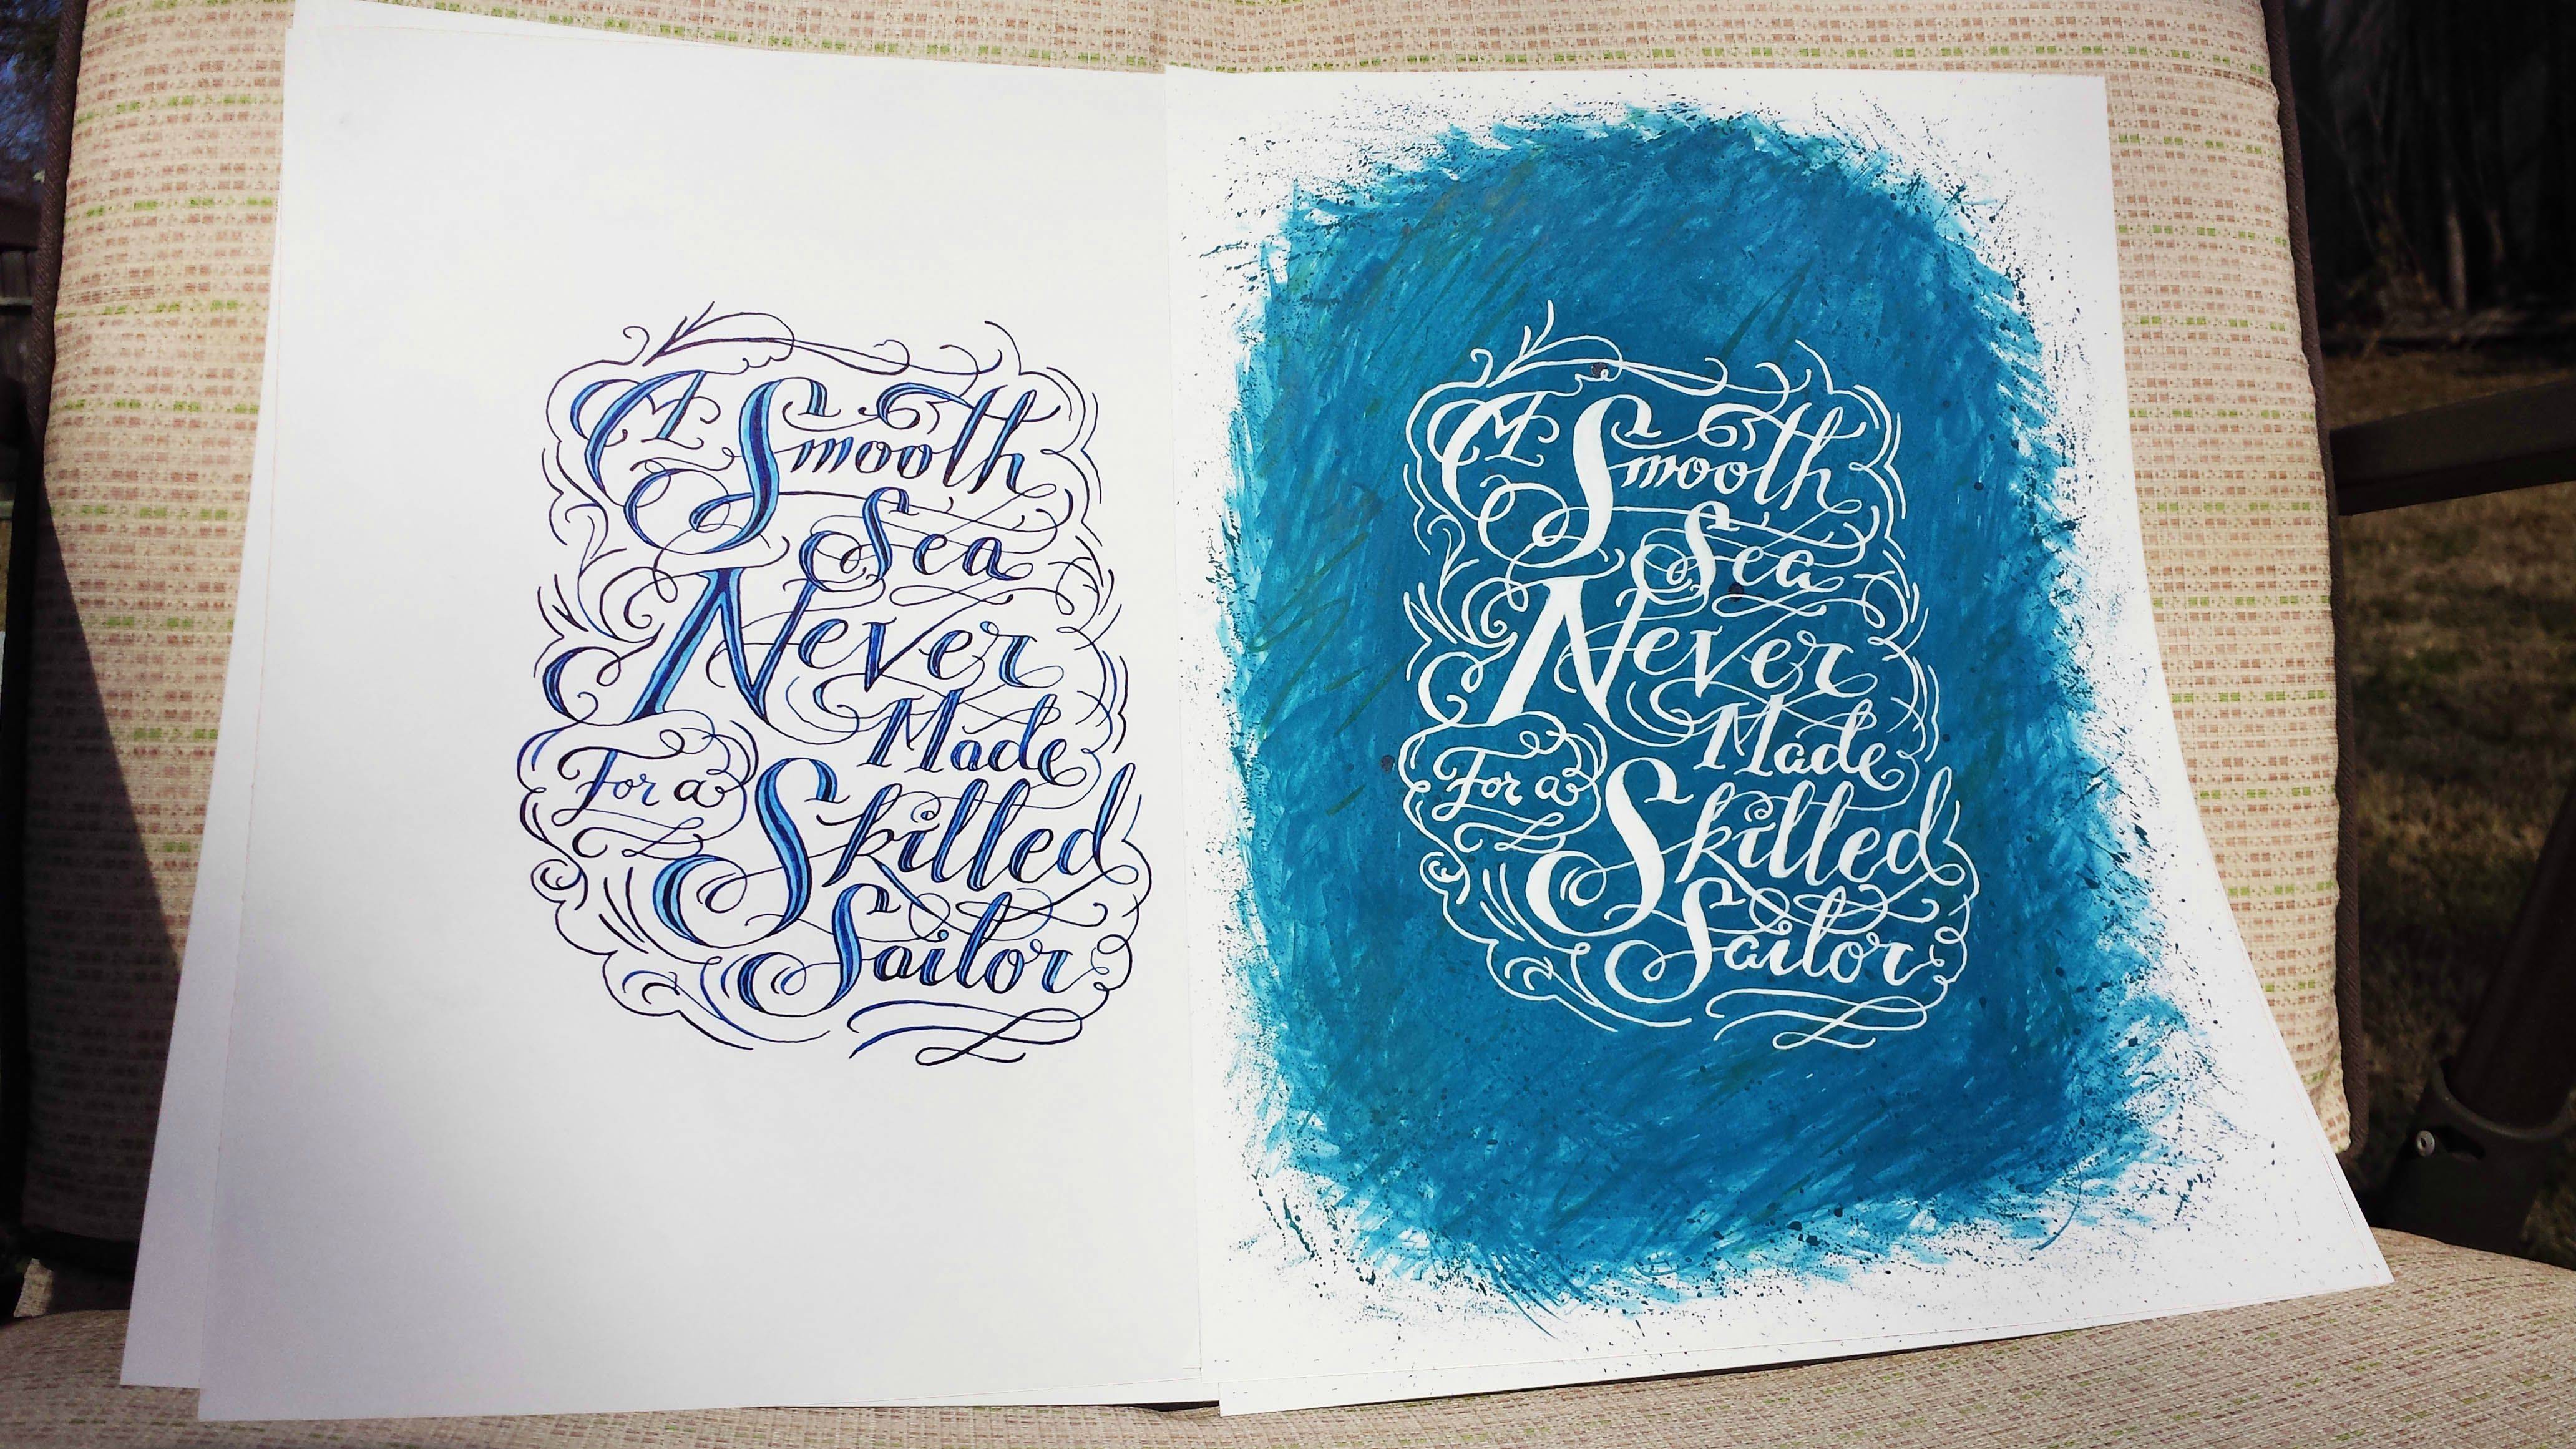 A Smooth
Sea
Never
Made
For a
Skilled
Sailor
A Smooth
Sea
Never
Made
For a
Skilled
Sailor